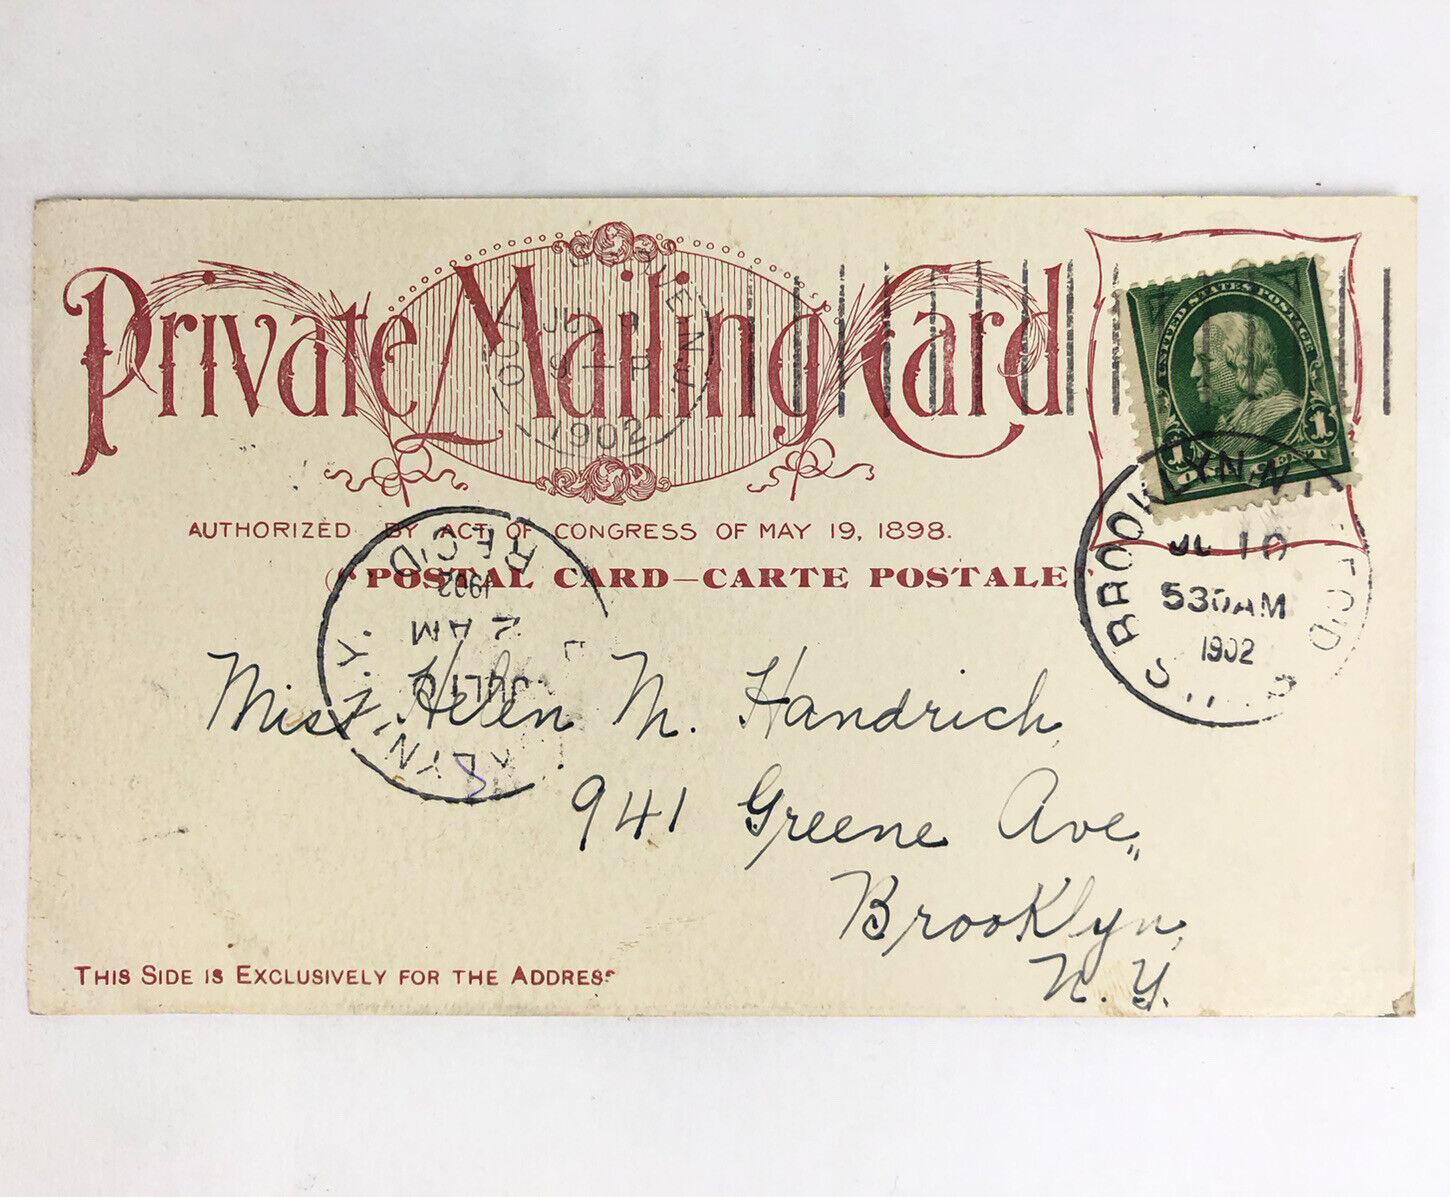 Private Mailing Card
1902
UNITED STATES POSTAGE
1 1
AUTHORIZED BY ACT OF CONGRESS OF MAY 19, 1898.
(POSTAL CARD—CARTE POSTALE
BROOKLYN, N.Y.
JL 10
530AM
1902
REC'D
REC'D
1902
2 AM
JUL 10
N.Y.
Miss Helen M. Handrich
941 Greene Ave,
Brooklyn,
N.Y.
THIS SIDE IS EXCLUSIVELY FOR THE ADDRESS